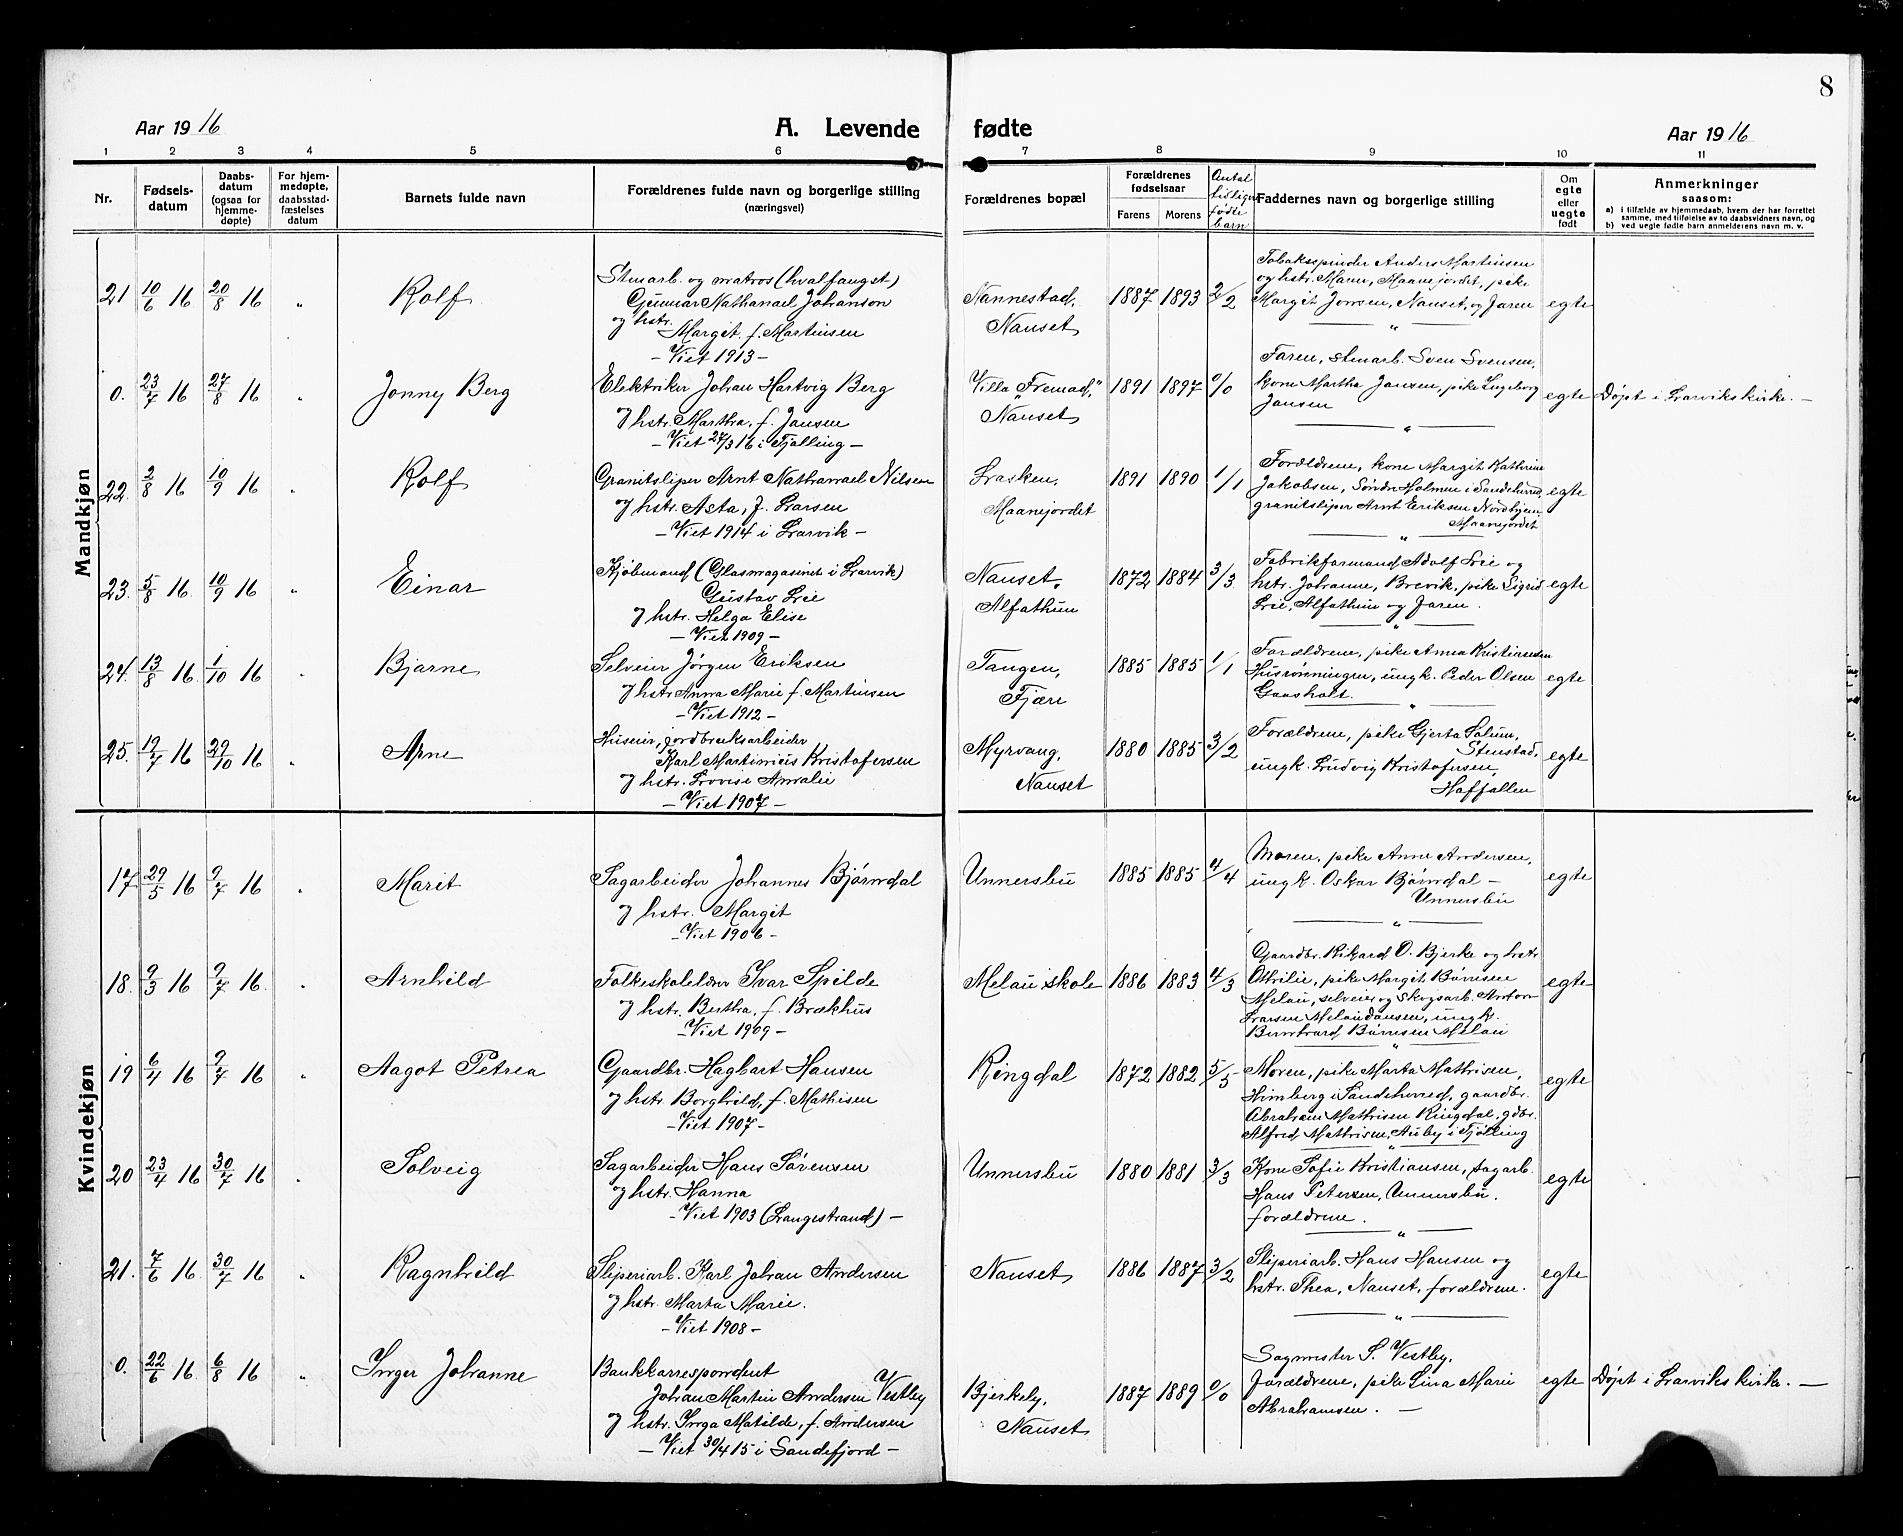 8
Aar 1916
A. Levende fødte
Aar 1916
1 2 3 4 5 6 7 8 9 10 11
Nr.
Fødsels-
datum
Daabs-
datum
(ogsaa for
hjemme-
døpte)
For hjem-
medøpte,
daabsstad-
fæstelses
datum
Barnets fulde navn
Forældrenes fulde navn og borgerlige stilling
(næringsvei)
Forældrenes bopæl
Forældrenes
fødselsaar
Farens Morens
Antal
tidligere
fødte
barn
Faddernes navn og borgerlige stilling
Om
egte
eller
uegte
født
Anmerkninger
saasom:
a) i tilfælde av hjemmedaab, hvem der har forrettet
samme, med tilføielse av to daabsvidners navn, og
b) ved uegte fødte barn anmelderens navn m. v.
Mandkjøn
21 10/6 16 20/8 16 " Rolf
Stenarb. og matros (hvalfangst)
Gunnar Nathanael Johanson
og hstr.
Margit f. Martinsen
- Viet 1913 -
Nannestad,
Nanset
1887 1893 2/2
Tobaksspinder Anders Martinsen
og hstr. Maren, Maanejordet, pike
Margit Jonsen, Nanset, og faren
egte
0. 23/7 16 27/8 16 " Jonny Berg
Elektriker Johan Hartvig Berg
og hstr. Martha, f. Jansen
- Viet 27/3 16 i Tjølling -
Villa "Fremad,"
Nanset
1891 1897 0/0
Faren, stenarb. Sven Svensen,
kone Martha Jansen, pike Ingeborg
Jansen
egte
Døpt i Larviks kirke. -
22. 2/8 16 10/9 16 " Rolf
Granitsliper Arnt Nathanael Nilsen
og hstr. Asta, f. Larsen
- Viet 1914 i Larvik -
Lrasken,
Maanejordet
1891 1890 1/1
Forældrene, kone Margit Kathrine
Jakobsen, Søndr Holmen i Sandeherred,
granitsliper Arnt Eriksen Nordhjem,
Maanejordet
egte
23. 5/8 16 10/9 16 " Einar
Kjøbmand (Glasmagasinet i Larvik)
Gustav Lie
og hstr. Helga Elise
- Viet 1909 -
Nanset,
Alfathun
1872 1884 3/3
Fabrikformand Adolf Lie og
hstr. Johanne, Brevik, pike Sigrid
Lie, Alfathun og faren.
egte
24. 13/8 16 1/10 16 " Bjarne
Selveier Jørgen Eriksen
og hstr. Anna Marie f. Martinsen
- Viet 1912 -
Tangen,
Fjære
1885 1885 1/1
Forældrene, pike Anna Kristiansen
Husrønningen, ungk. Peder Olsen
Gaasholt.
egte
25. 19/7 16 29/10 16 " Arne
Huseier, jordbruksarbeider
Karl Martinius Kristofersen
og hstr. Lovise Amalie
- Viet 1907 -
Myrvang,
Nanset
1880 1885 3/2
Forældrene, pike Gjerta Solum,
Stenstad,
ungk. Ludvig Kristofersen,
Haffallen
egte
Kvindekjøn
17 29/5 16 9/7 16 " Marit
Sagarbeider Johannes Bjørndal
og hstr. Margit
- Viet 1906 -
Unnersbu
1885 1885 4/4
Moren, pike Anne Andersen,
ungk. Oskar Bjørndal -
Unnersbu
egte
18. 9/3 16 9/7 16. " Arnhild
Folkeskolelærer Ivar Spilde
og hstr. Bertha, f. Brækhus
- Viet 1909 -
Melau skole
1886 1883 4/3
Gaardbr. Rikard O. Bjerke og hstr
Othilie, pike Margit Børresen
Melau, selveier og skogsarb. Anton
Larsen Melaudansen, ungk.
Bernhard Børresen Melau
egte
19 6/4 16 9/7 16 " Aagot Petrea
Gaardbr. Hagbart Hansen
og hstr. Borghild, f. Mathisen
- Viet 1907 -
Ringdal
1872 1882 5/5
Moren, pike Marta Mathisen,
Himberg i Sandeherred, gaardbr.
Abraham Mathisen Ringdal, gdbr.
Alfred Mathisen, Auby i Tjølling
egte
20 23/4 16 30/7 16 " Solveig
Sagarbeider Hans Sørensen
og hstr. Hanna
- Viet 1903 (Langestrand) -
Unnersbu
1880 1881 3/3
Kone Sofie Kristiansen, sagarb.
Hans Petersen, Unnersbu.
forældrene.
egte
21. 7/6 16. 30/7 16 " Ragnhild
Sliperiarb. Karl Johan Andersen
og hstr. Marta Marie.
- Viet 1908 -
Nanset
1886 1887 3/2
Sliperiarb. Hans Hansen og
hstr. Thea, Nanset, forældrene.
egte
0. 22/6 16 6/8 16 " Inger Johanne
Bankkorrespondent
Johan Martin Andersen Vestby
og hstr. Inga Matilde, f. Andersen
- Viet 30/4 15 i Sandefjord -
Bjerkely,
Nanset
1887 1889 0/0
Sagmester S. Vestby,
Forældrene, pike Lina Marie
Abrahamsen. -
egte
Døpt i Larviks kirke. -